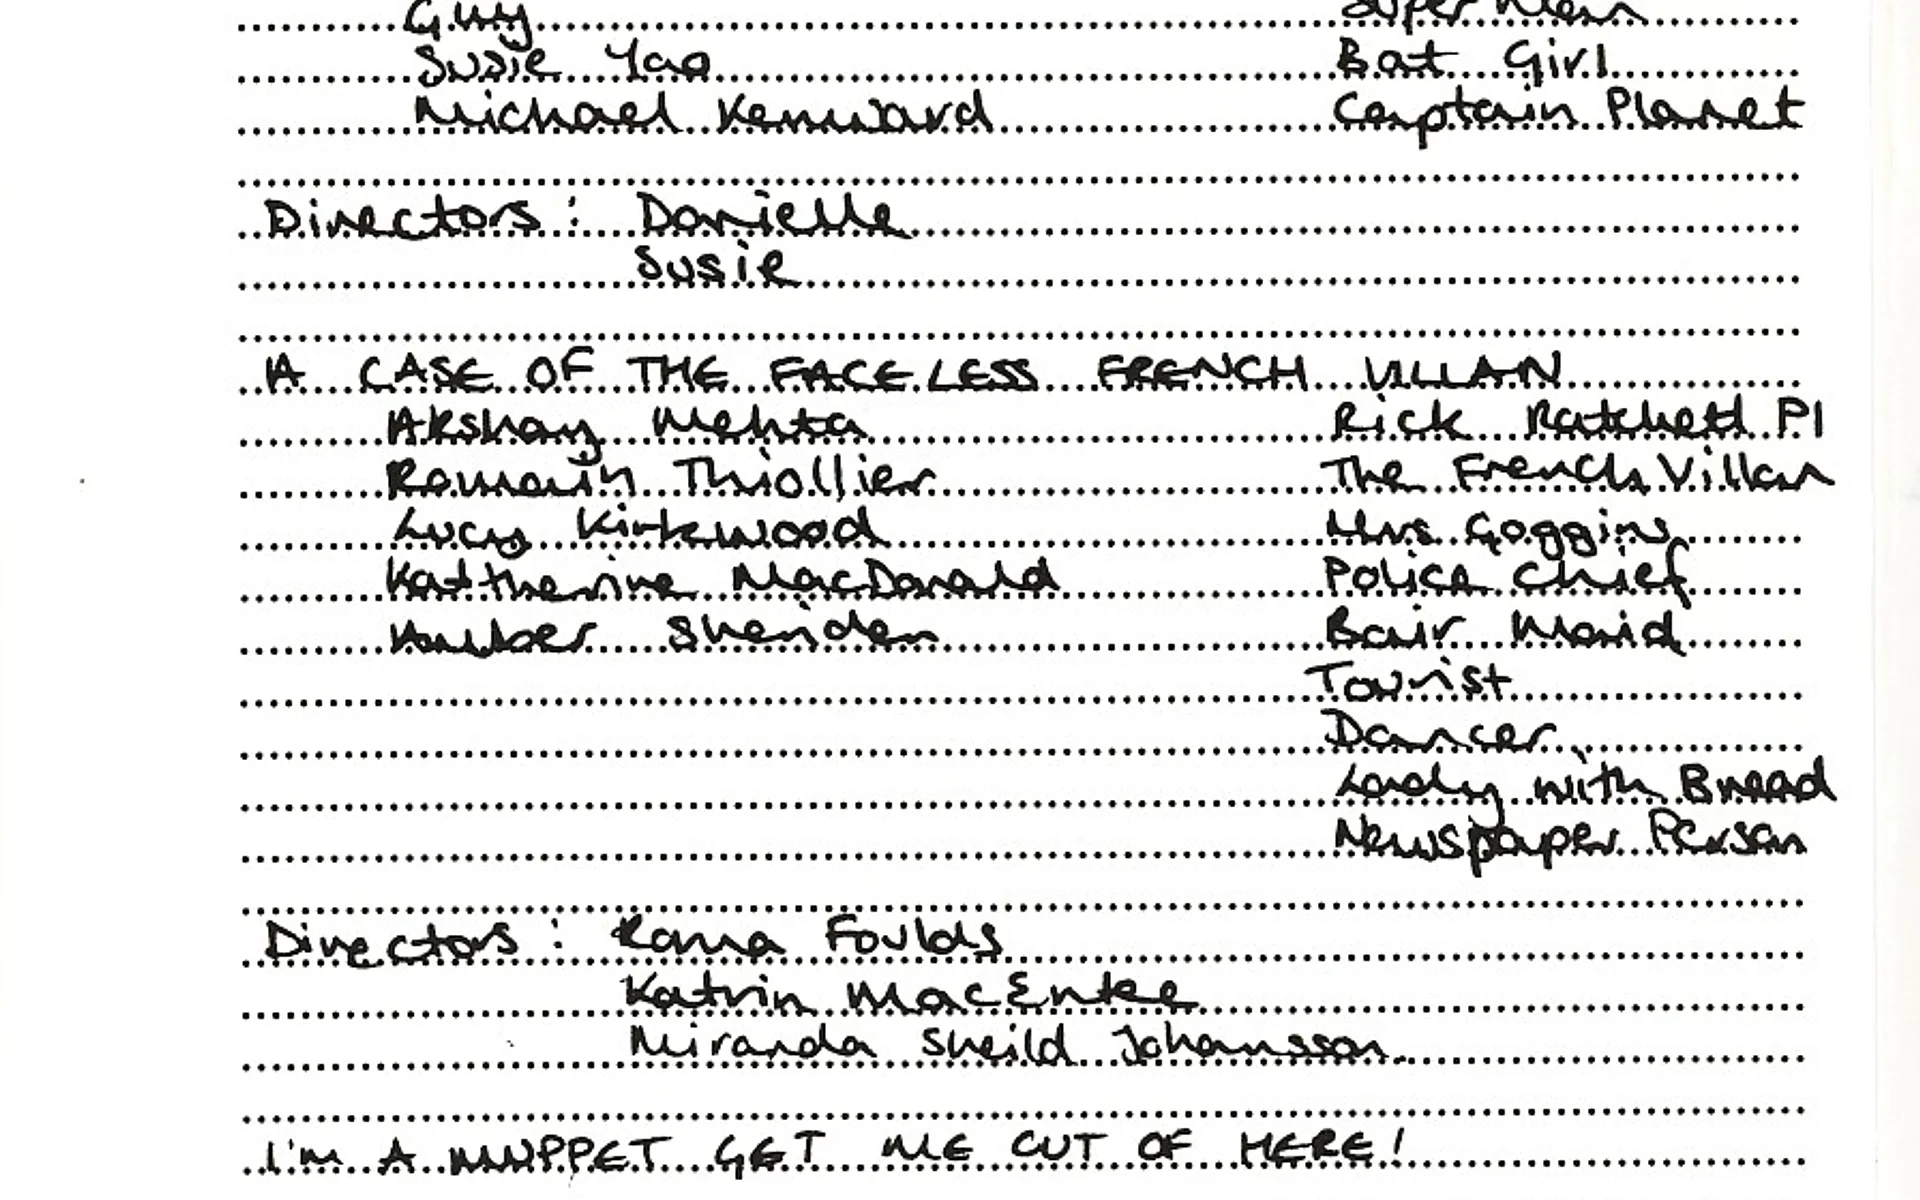 Guy Super Man
Susie Yao Bat Girl
Michael Kenward Captain Planet
Directors: Danielle
Susie
A CASE OF THE FACELESS FRENCH VILLAN
Akshay Mehta Rick Ratchett PI
Romain Thiollier The French Villan
Lucy Kirkwood Mrs Goggins
Kattherine MacDonald Police Chief
Amber Sheriden Bair Maid
Tourist
Dancer
Lady with Bread
Newspaper Person
Directors: Rama Foulds
Katrin MacEntee
Miranda Sheild Johansson
I'M A MUPPET GET ME OUT OF HERE!